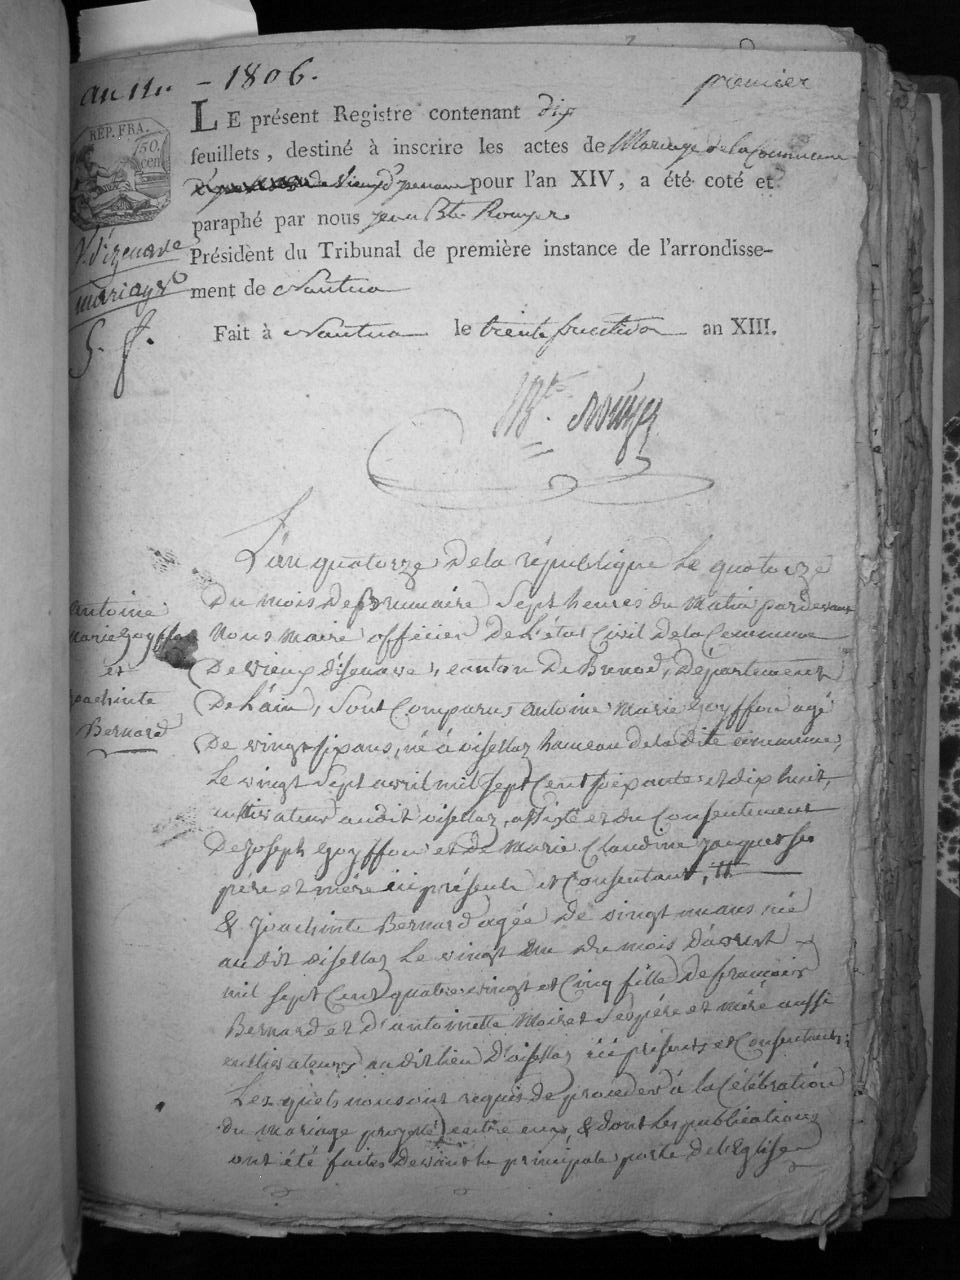 an 14. - 1806.
premier
LE présent Registre contenant dix
feuillets, destiné à inscrire les actes de Mariage de la Commune
de Vieux d'Izenave pour l'an XIV, a été coté et
paraphé par nous jean Bte Rouyer
Président du Tribunal de première instance de l'arrondisse-
ment de Nantua
Fait à Nantua le trente fructidor an XIII.
RÉP. FRA.
50.
cen
V. d'izenave
mariages
Antoine
Marie Goyffon
et
joachinte
Bernard
L'an quatorze de la république le quatorze
Du mois de Brumaire sept heures du matin pardevant
Nous maire officier de l'état Civil de la Commune
De vieux d'isenave, canton de Brenod, Département
De l'ain, sont Comparus antoine Marie Goyffon agé
De vingt six ans, né à oisellaz hameau de la dite commune,
Le vingt sept avril mil sept Cent soixante et dix huit,
cultivateur audit oisellaz, assisté et du Consentement
De joseph Goyffon et de Marie Claudine jacquet ses
père et mère ici présents et Consentant,
& joachinte Bernard agée de vingt un ans née
audit oisellaz le vingt un du mois d'avril
mil sept Cent quatre vingt et Cinq fille de françois
Bernard et d'antoinette Moiret ses père et mère aussi
cultivateurs audit lieu d'oisellaz ici présents et Consentants;
Les quels nous ont requis de proceder à la Célébration
du mariage projetté entre eux, & dont les publications
ont été faites devant la principale porte de l'Eglise